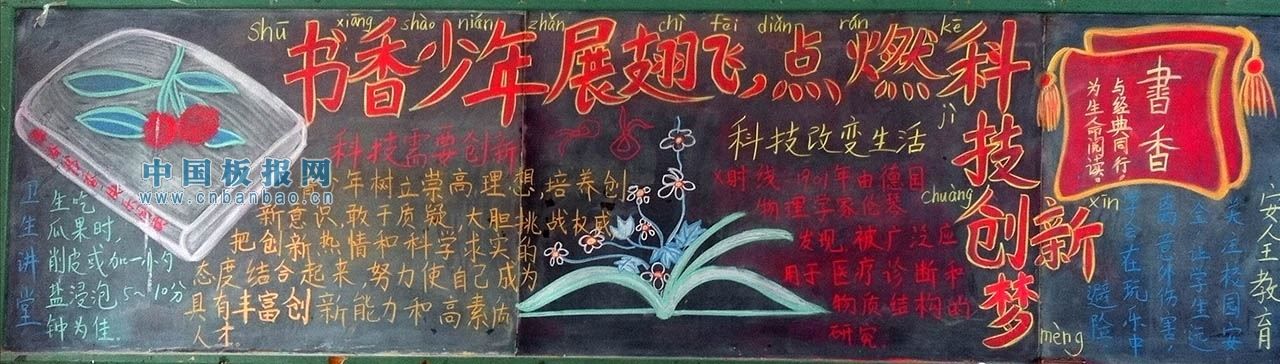 shū xiāng shào nián zhǎn chì fēi diǎn rán kē
书香少年展翅飞,点燃科
jì
技
chuàng xīn
创新
mèng
梦
科技需要创新
少年树立崇高理想培养创
新意识,敢于质疑,大胆挑战权威
把创新热情和科学求实的
态度结合起来,努力使自己成为
具有丰富创新能力和高素质
人才.
中国板报网
www.cnbanbao.cn
卫生讲堂
生吃
瓜果时,
削皮或加一小勺
盐浸泡5~10分
钟为佳.
科技改变生活
X射线-1901年由德国
物理学家伦琴
发现,被广泛应
用于医疗诊断和
物质结构的
研究.
書香
与经典同行,
为生命阅读。
安全教育
关注校园安
全,让学生远
离意外伤害
学会在玩乐中
避险